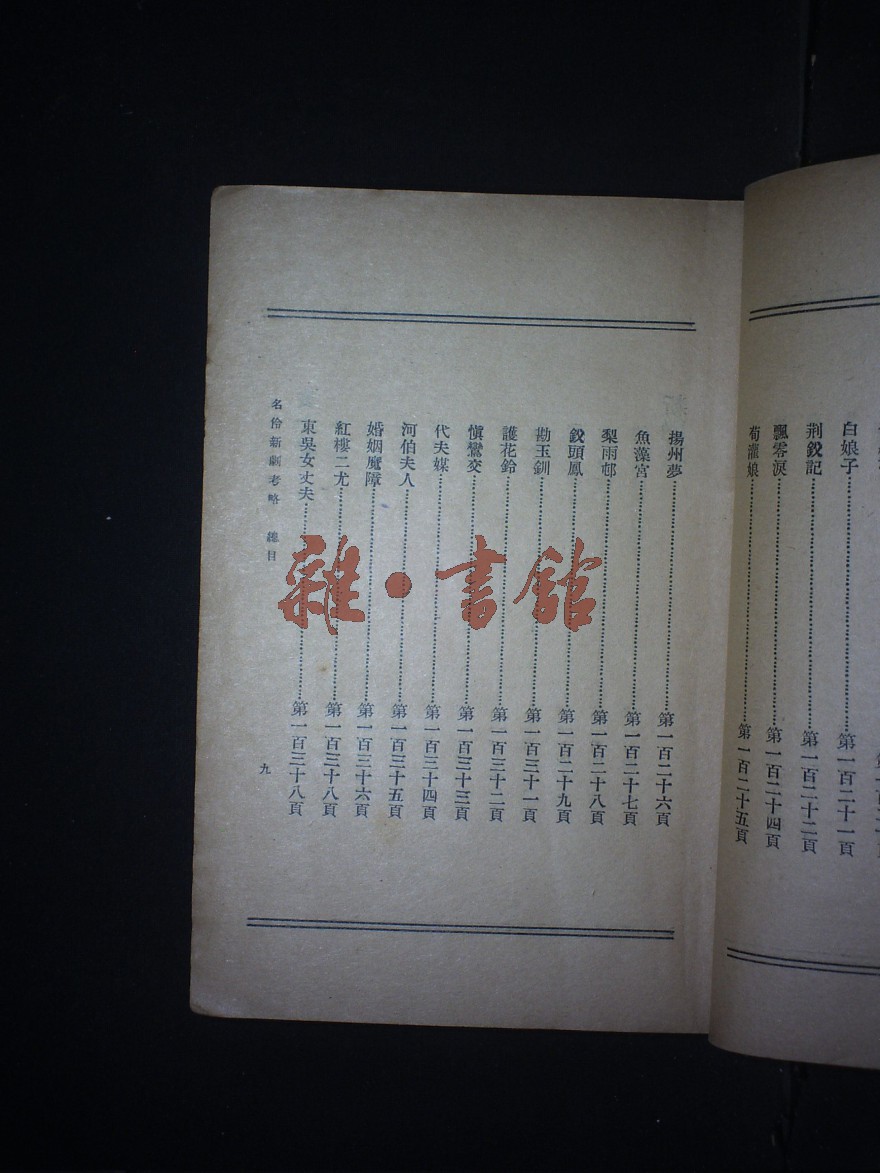 白娘子……第一百二十一頁
荆釵記……第一百二十二頁
飄零淚……第一百二十四頁
荀灌娘……第一百二十五頁
揚州夢……第一百二十六頁
魚藻宮……第一百二十七頁
梨雨邨……第一百二十八頁
釵頭鳳……第一百二十九頁
勘玉釧……第一百三十一頁
護花鈴……第一百三十二頁
愼鸞交……第一百三十三頁
代夫媒……第一百三十四頁
河伯夫人……第一百三十五頁
婚姻魔障……第一百三十六頁
紅樓二尤……第一百三十八頁
東吳女丈夫……第一百三十八頁
名伶新劇考略 總目
九
雜·書館